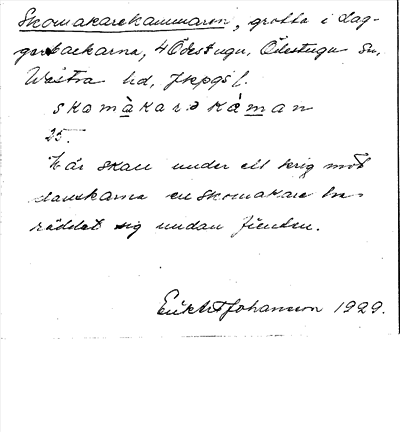 Skomakarekammaren, grotta i dag-
backarna, 4 Ödestugu, Ödestugu sn,
Västra hd, Jkpgs l.
skomàkarə kám̀an
25.
Här skall under ett krig mot
danskarna en skomakare ha
räddat sig undan fienden.
Erik Johansson 1929.